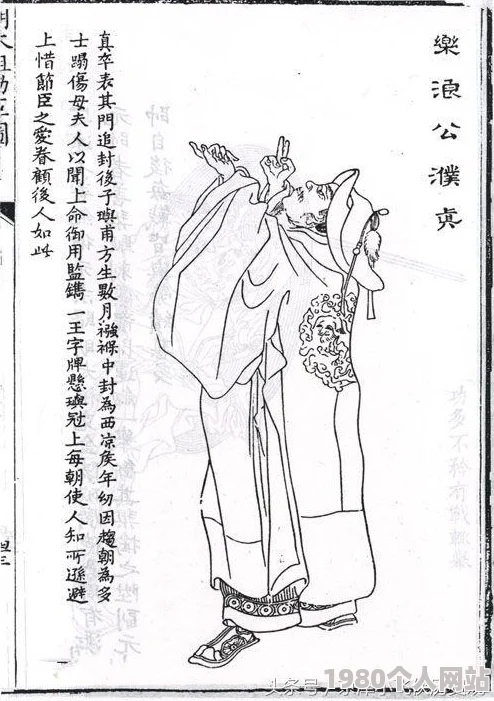 樂浪公濮真
真卒表其門追封後子璵甫方生數月襁褓中封為西凉侯年幼因趨朝為多
士蹋傷母夫人以聞上命御用監鐫一王字牌懸璵冠上每朝使人知所遜避
上惜節臣之愛眷顧後人如此
明太祖功臣圖
1980个人网站
头条号